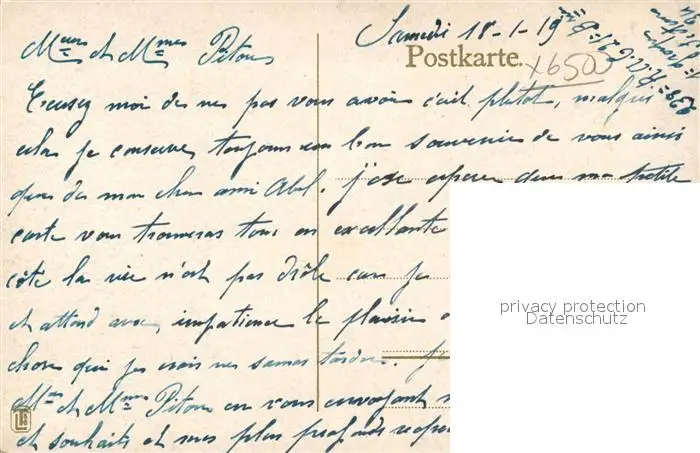 Samedi 18-1-19
Postkarte.
x650
Meurs et Mmes Pitous
Excusez moi de ne pas vous avoir écrit plutot, malgré
cela je conserve toujours un bon souvenir de vous ainsi
que de mon cher ami Abel. J'ose espérer que ma petite
carte vous trouveras tous en excellante
côté la vie n'est pas drôle car je
et attend avec impatience le plaisir
chose qui je crois ne sauras tarder. Je
Mrs et Mmes Pitous en vous envoyant
et souhaits et mes plus profonds respe
privacy protection
Datenschutz